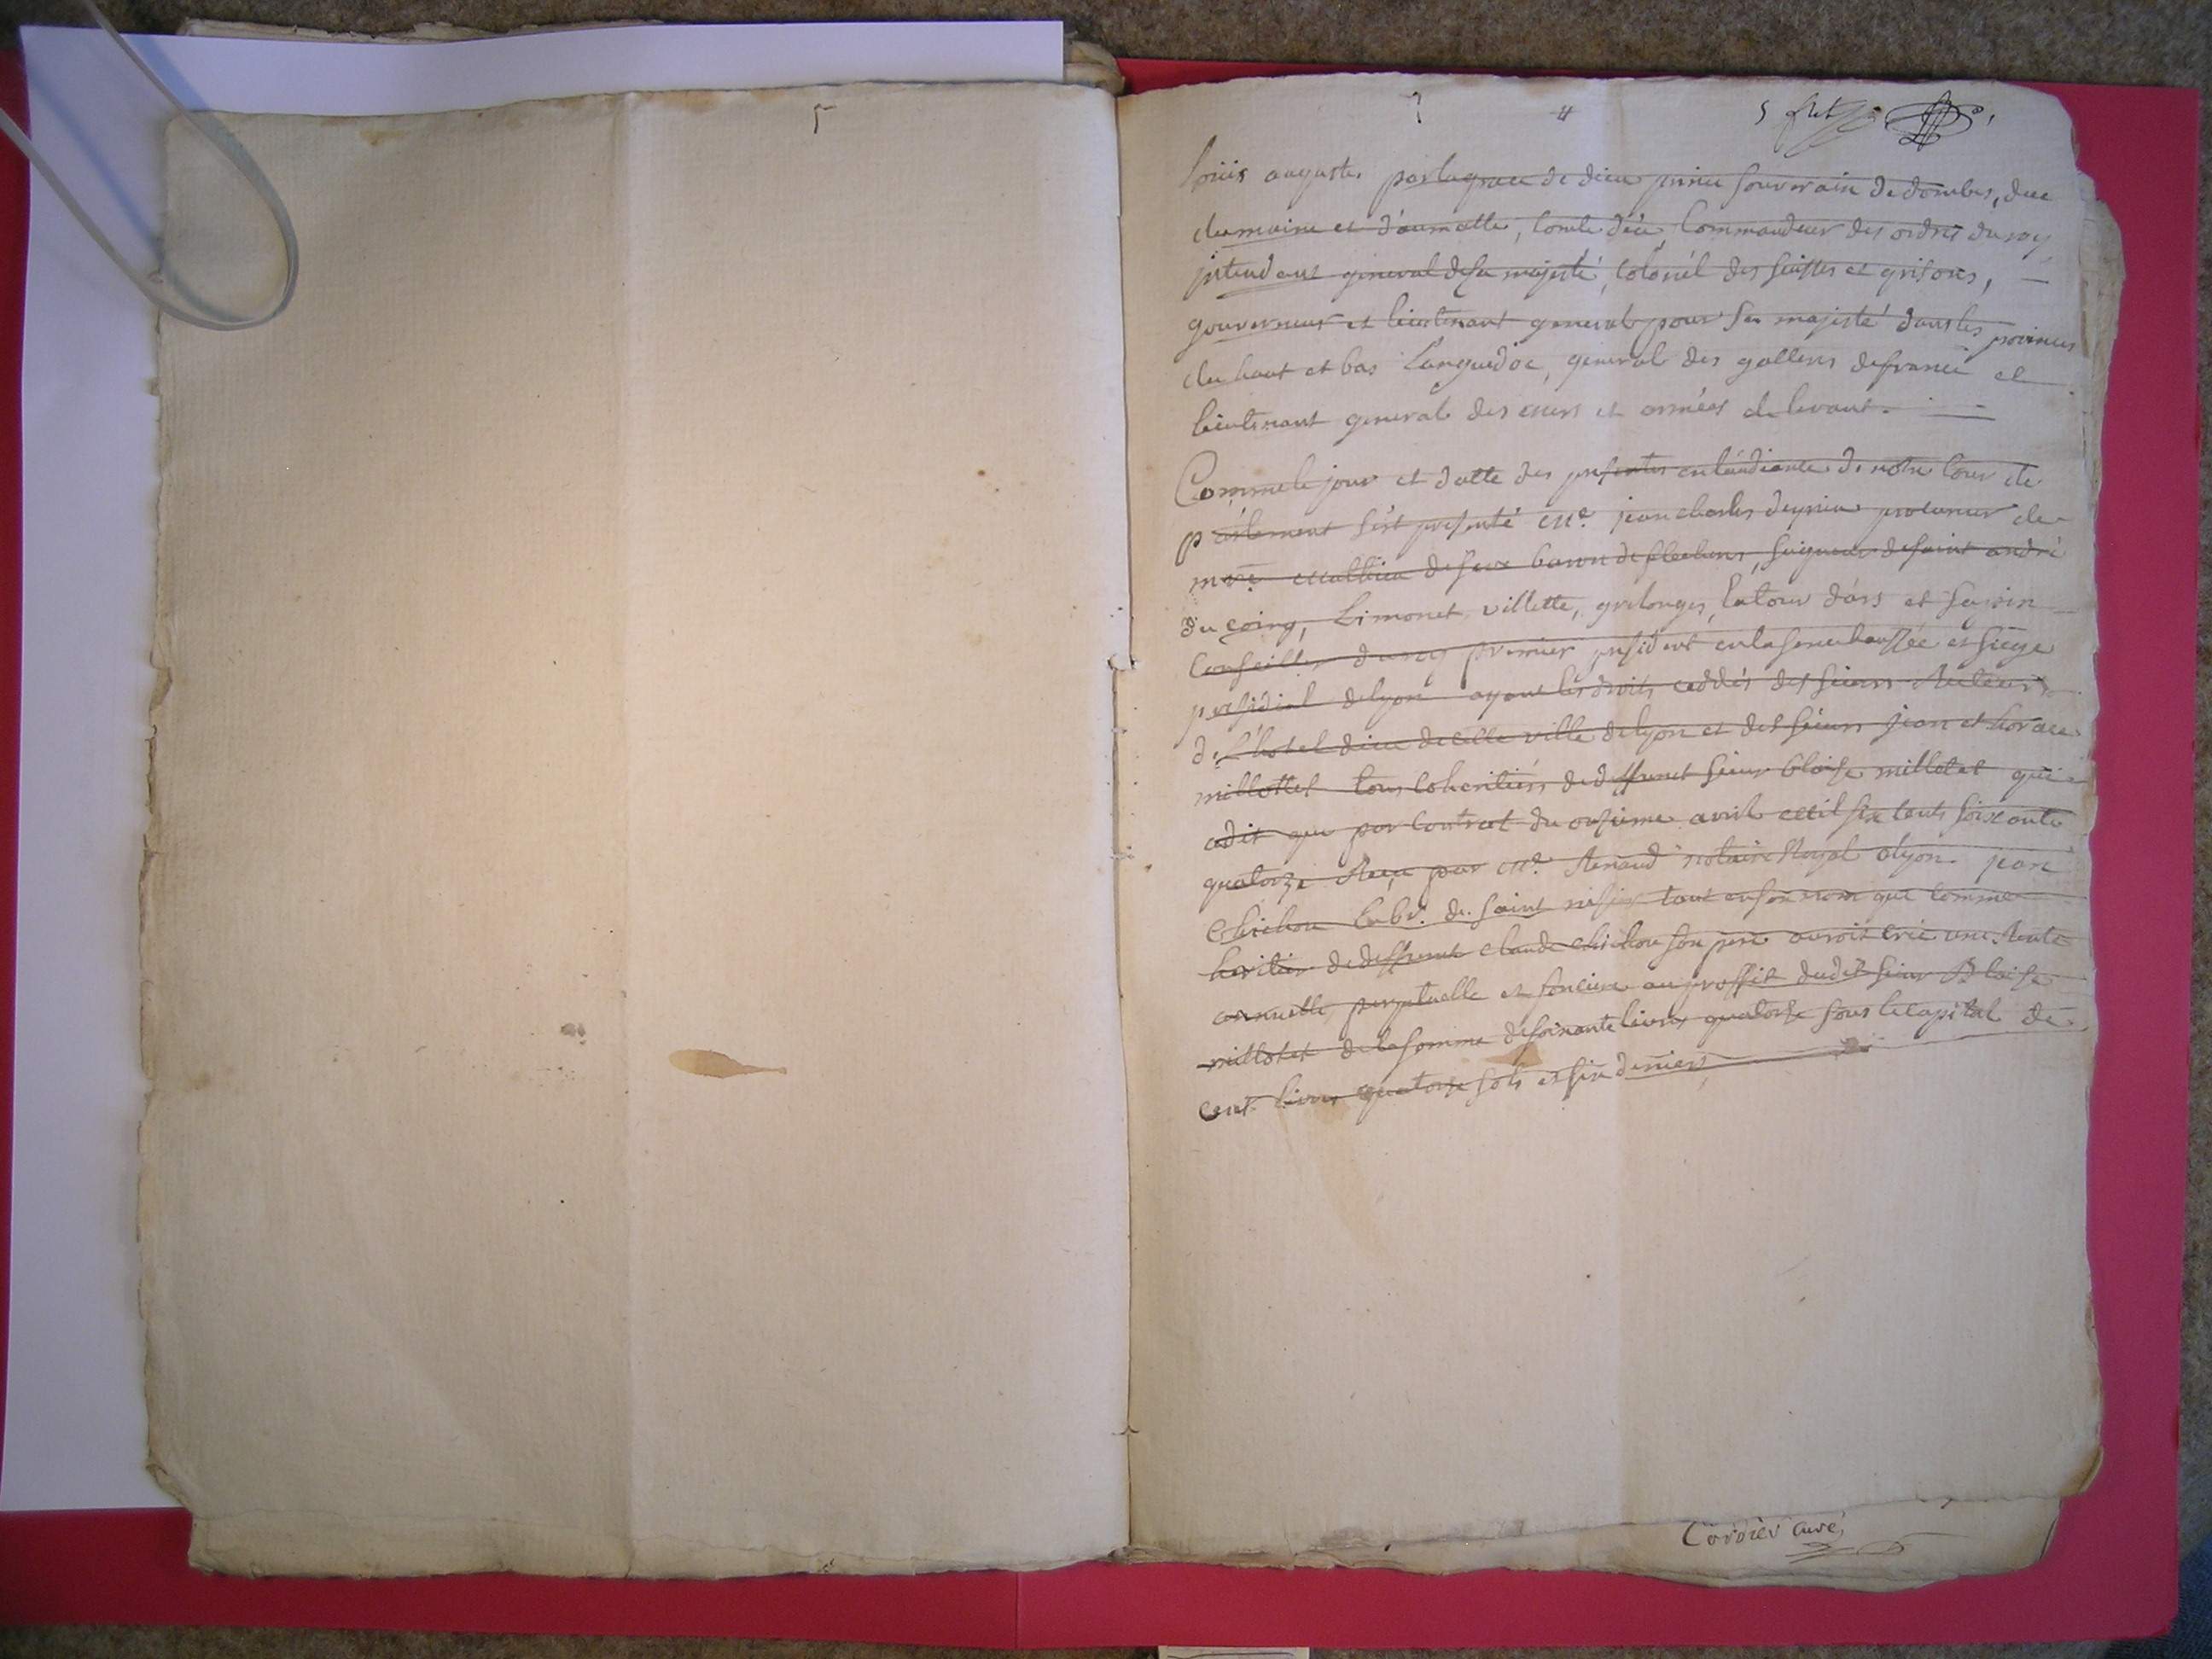 5 flet
Louis auguste par la grace de dieu prince souverain de dombes, duc
du maine et d'aumalle, Comte d'eu, Commandeur des ordres du roy
general de sa majesté, Colonél des suisses et grisons,
gouverneur et lieutenant general pour sa majesté dans les provinces
du haut et bas Languedoc, general des galleres de france et
lieutenant general des mers et armées de levant.
Comme le jour et datte des presentes en l'audiance de notre Cour de
parlement s'est presenté Me. jean charles procureur de
mre. Matthieu de seve baron de flecheres, seigneur de saint andré
du coing, Limonet, villette, grelonges, la tour d'ars et
Conseiller du roy premier president en la senechaussée et siege
presidial de lyon ayant les droits ceddés des sieurs Recteurs
de L'hotel dieu de celle ville de lyon et des sieurs jean et horace
millottet tous coheritiers de deffunct sieur blaise millotet qui
a dit que par Contract du onzieme avril mil six cents soixante
quatorze Reçu par Me. Renaud notaire Royal a lyon jean
Chichon de saint tant en son nom que comme
heritier de deffunct claude chichon son pere auroit créé une Rente
annuelle, perpetuelle et fonciere au proffit dudit sieur Blaise
millotet de la somme de soixante livres quatorze sous le capital de
cent livres quatorze sols et six deniers
Cordier curé,